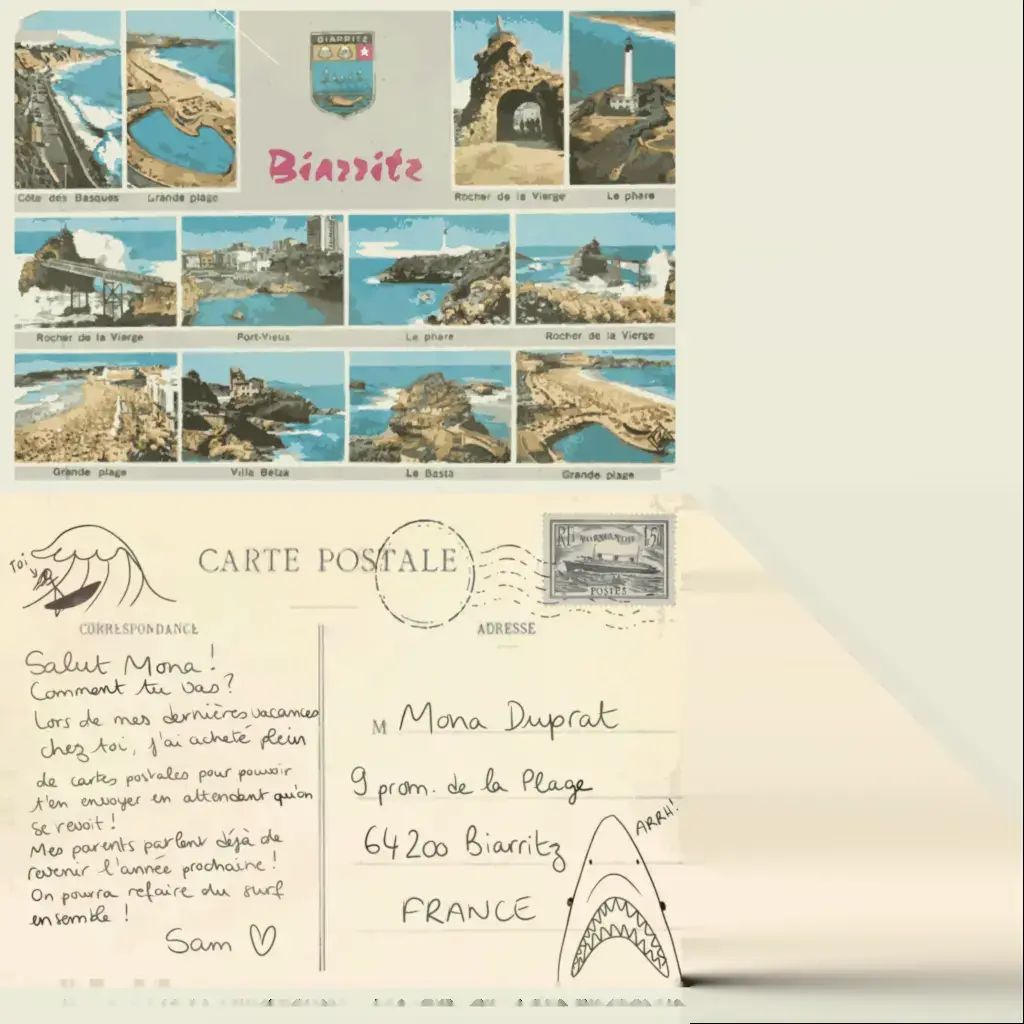 BIARRITZ
Biarritz
Côte des Basques Grande plage Rocher de la Vierge Le phare
Rocher de la Vierge Port-Vieux Le phare Rocher de la Vierge
Grande plage Villa Belza Le Basta Grande plage
Toi
CARTE POSTALE
RF NORMANDIE 1,50
POSTES
CORRESPONDANCE
ADRESSE
Salut Mona !
Comment tu vas ?
Lors de mes dernières vacances
chez toi, j'ai acheté plein
de cartes postales pour pouvoir
t'en envoyer en attendant qu'on
se revoit !
Mes parents parlent déjà de
revenir l'année prochaine !
On pourra refaire du surf
ensemble !
Sam
M Mona Duprat
9 prom. de la Plage
64200 Biarritz
FRANCE
ARRH!